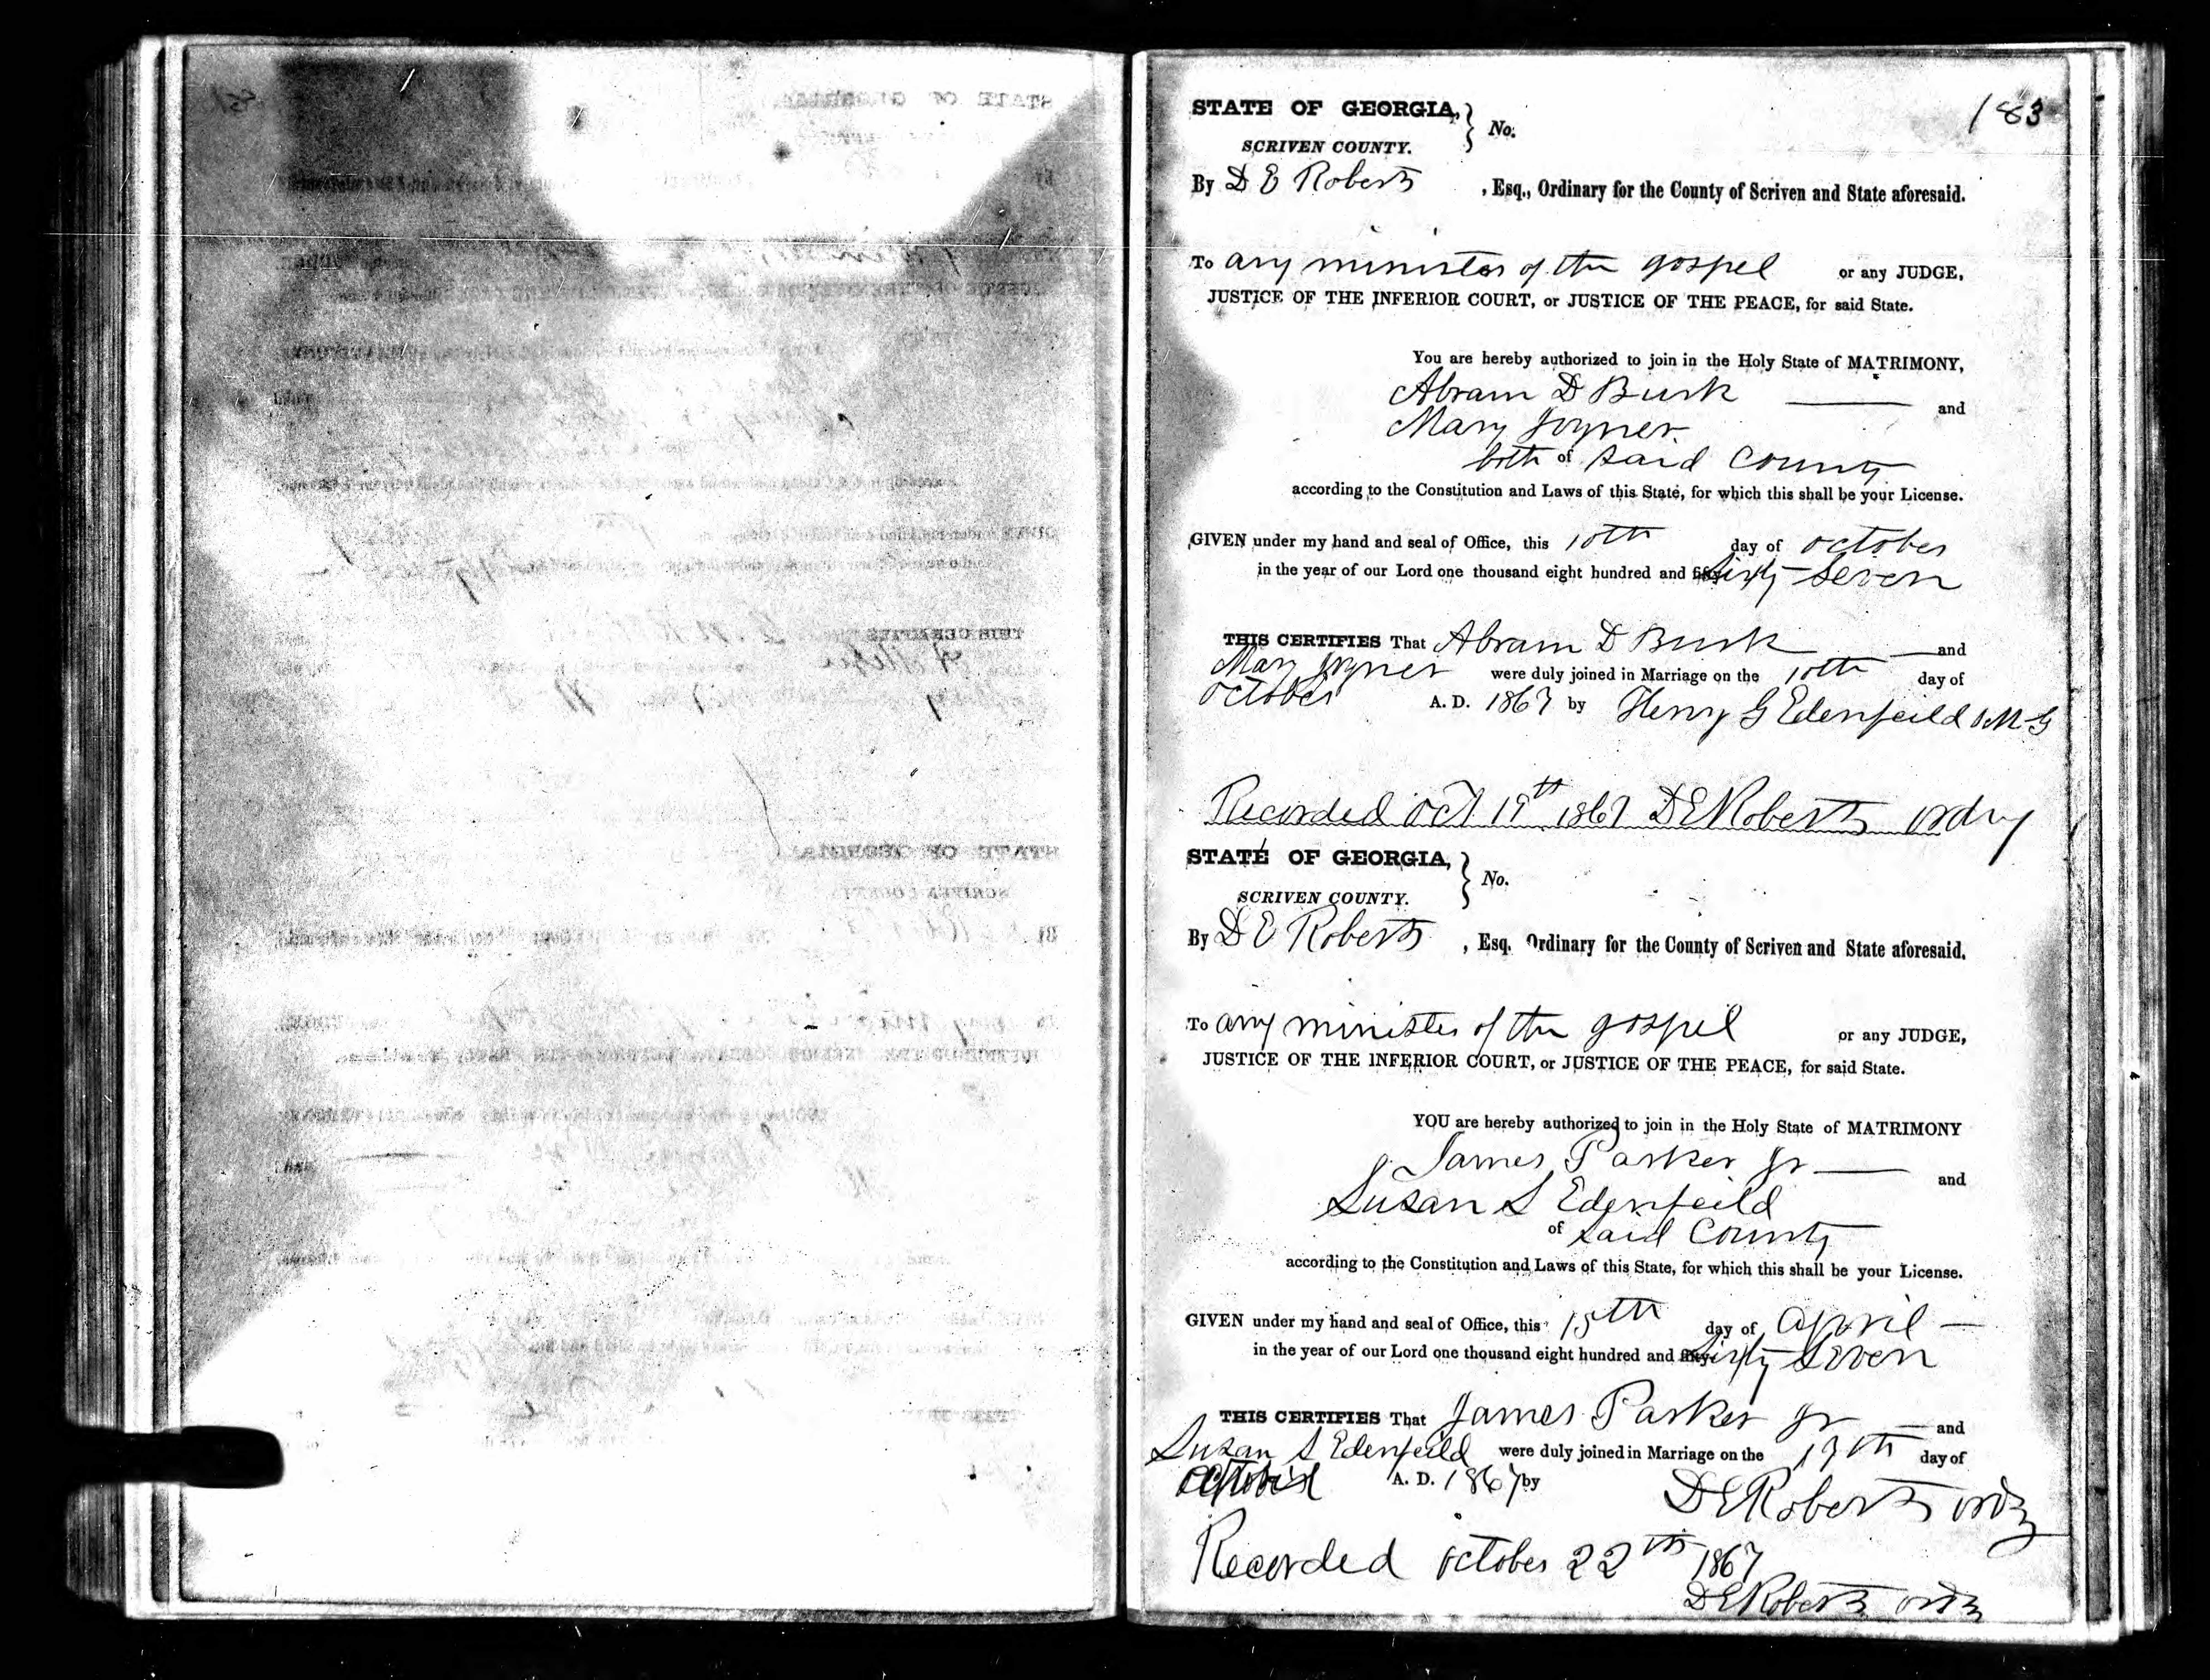 183
STATE OF GEORGIA, } No.
SCRIVEN COUNTY.
By D E Roberts , Esq., Ordinary for the County of Scriven and State aforesaid.
To any minister of the gospel or any JUDGE,
JUSTICE OF THE INFERIOR COURT, or JUSTICE OF THE PEACE, for said State.
You are hereby authorized to join in the Holy State of MATRIMONY,
Abram D Burk and
Mary Joyner
both of said County
according to the Constitution and Laws of this State, for which this shall be your License.
GIVEN under my hand and seal of Office, this 10th day of October
in the year of our Lord one thousand eight hundred and fifty Sixty Seven
THIS CERTIFIES That Abram D Burk and
Mary Joyner were duly joined in Marriage on the 10th day of
October A. D. 1867 by Henry G Edenfeild M G
Recorded Oct 19th 1867 D E Roberts ordry
STATE OF GEORGIA, } No.
SCRIVEN COUNTY.
By D E Roberts , Esq. Ordinary for the County of Scriven and State aforesaid.
To any minister of the gospel or any JUDGE,
JUSTICE OF THE INFERIOR COURT, or JUSTICE OF THE PEACE, for said State.
YOU are hereby authorized to join in the Holy State of MATRIMONY
James Parker Jr and
Susan S Edenfeild
of said County
according to the Constitution and Laws of this State, for which this shall be your License.
GIVEN under my hand and seal of Office, this 15th day of April
in the year of our Lord one thousand eight hundred and fifty Sixty Seven
THIS CERTIFIES That James Parker Jr and
Susan S Edenfeild were duly joined in Marriage on the 19th day of
A. D. 1867 by D E Roberts ordy
Recorded October 22th 1867
D E Roberts ordy